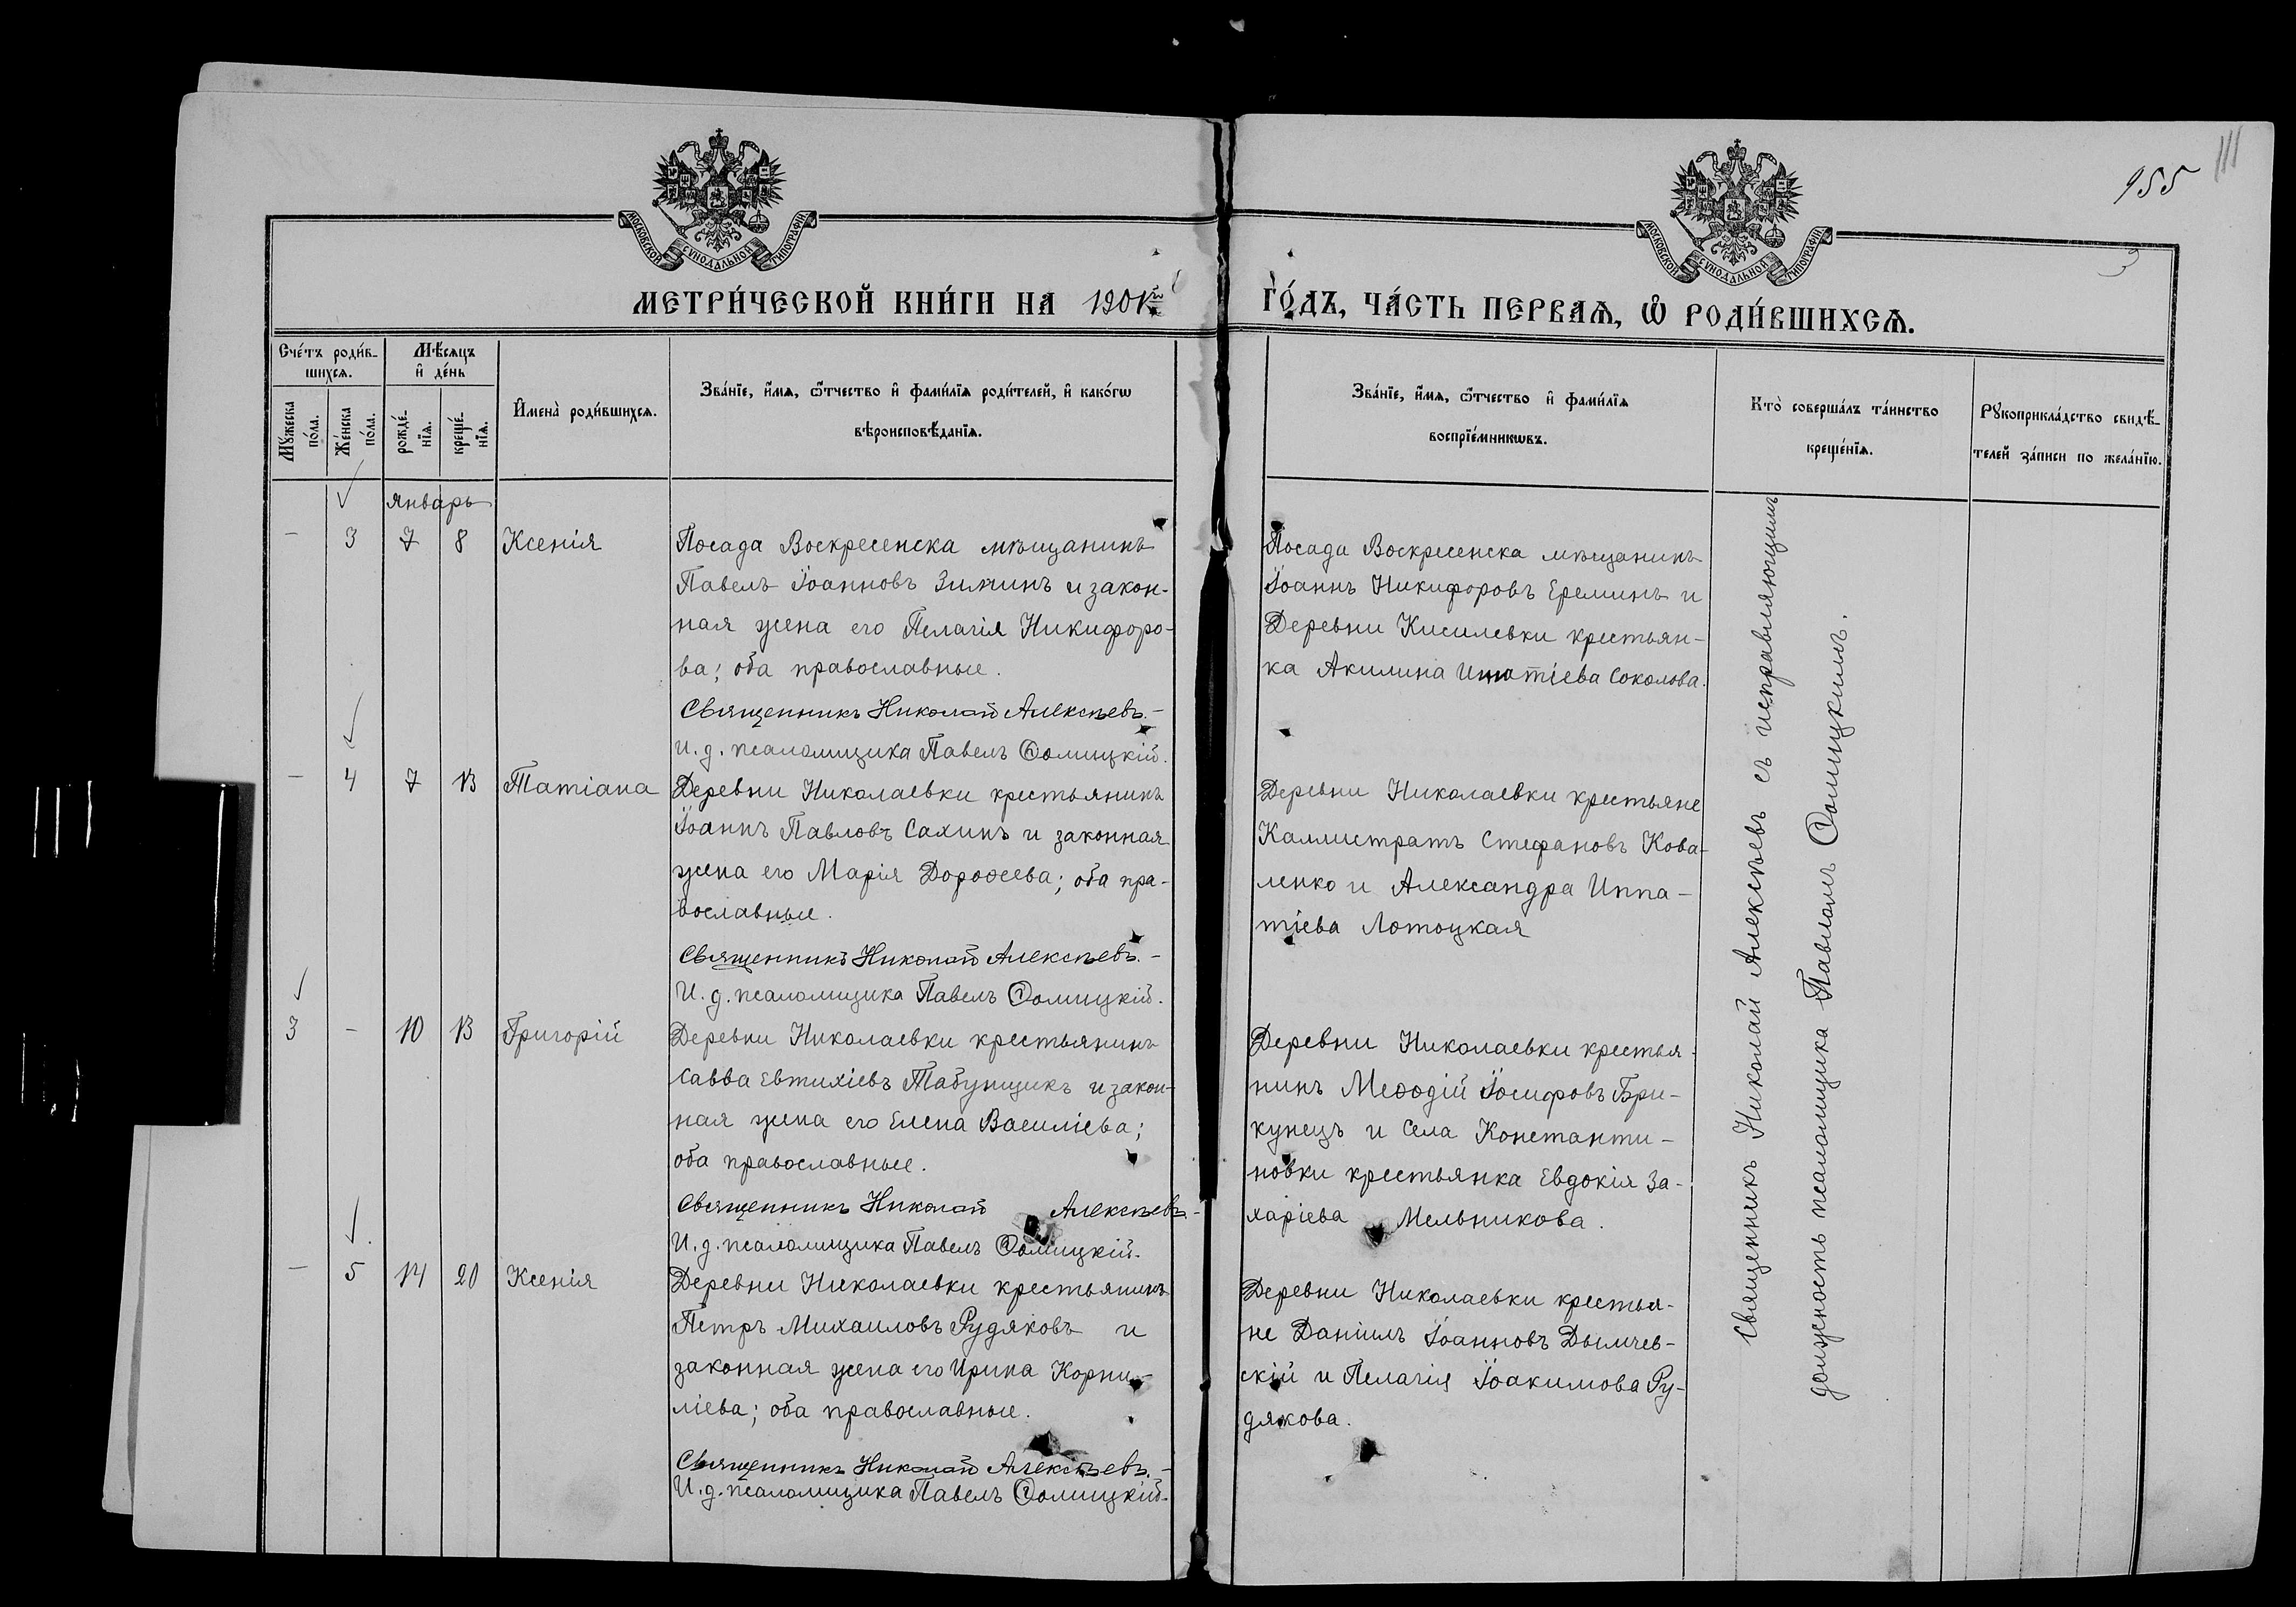 955
III
МОСКОВСКОЙ СѴНОДАЛЬНОЙ ТИПОГРАФІИ
МОСКОВСКОЙ СѴНОДАЛЬНОЙ ТИПОГРАФІИ
МЕТРИ́ЧЕСКОЙ КНИ́ГИ НА 1901й ГО́ДЪ, ЧА́СТЬ ПЕРВАѦ, Ѽ РОДИ́ВШИХСѦ.
Сче́тъ роди́в-
шихсѧ.
Мѣ́сѧцъ
и҆ де́нь
Мꙋ́жеска
по́ла.
Же́нска
по́ла.
рожде́-
нїѧ.
креще́-
нїѧ.
И҆мена̀ роди́вшихсѧ.
Зва́нїе, и҆́мѧ, ѻ҆́тчество и҆ фами́лїѧ роди́телей, и҆ како́гѡ
вѣроисповѣ́данїѧ.
Зва́нїе, и҆́мѧ, ѻ҆́тчество и҆ фами́лїѧ
воспрїе́мникѡвъ.
Кто̀ соверша́лъ та́инство
креще́нїѧ.
Рꙋкоприкла́дство свидѣ́-
телей за́писи по жела́нїю.
Январь
- 3 7 8 Ксенія
Посада Воскресенска мѣщанинъ
Павелъ Іоанновъ Зиминъ и закон-
ная жена его Пелагія Никифоро-
ва; оба православные.
Священникъ Николай Алексѣевъ.-
И. д. псаломщика Павелъ Ѳомицкій.
Посада Воскресенска мѣщанинъ
Іоаннъ Никифоровъ Ереминъ и
Деревни Кисилевки крестьян-
ка Акилина Игнатіева Соколова.
- 4 7 13 Татіана
Деревни Николаевки крестьянинъ
Іоаннъ Павловъ Сахинъ и законная
жена его Марія Дороѳеева; оба пра-
вославные.
Священникъ Николай Алексѣевъ.-
И. д. псаломщика Павелъ Ѳомицкій.
Деревни Николаевки крестьяне
Каллистратъ Стефановъ Кова-
ленко и Александра Иппа-
тіева Лотоцкая
3 - 10 13 Григорій
Деревни Николаевки крестьянинъ
Савва Евтихіевъ Табунщикъ и закон-
ная жена его Елена Василіева;
оба православные.
Священникъ Николай Алексѣевъ.-
И. д. псаломщика Павелъ Ѳомицкій.
Деревни Николаевки крестья-
нинъ Меѳодій Іосифовъ Бри-
кунецъ и села Константи-
новки крестьянка Евдокія За-
харіева Мельникова.
- 5 14 20 Ксенія
Деревни Николаевки крестьянинъ
Петръ Михаиловъ Рудяковъ и
законная жена его Ирина Корни-
ліева; оба православные.
Священникъ Николай Алексѣевъ.-
И. д. псаломщика Павелъ Ѳомицкій.
Деревни Николаевки крестья-
не Даніилъ Іоанновъ Дымчев-
скій и Пелагія Іоакимова Ру-
дякова.
Священникъ Николай Алексѣевъ съ исправляющимъ
должность псаломщика Павломъ Ѳомицкимъ.